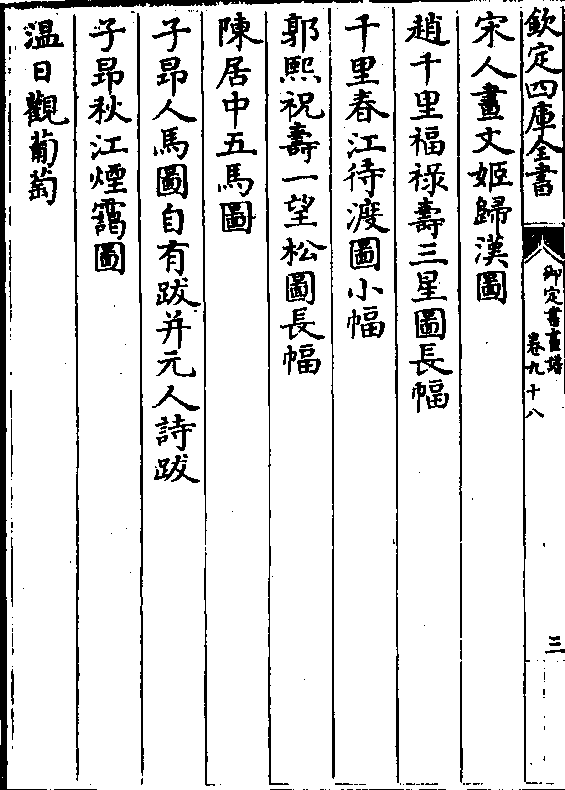 欽定四庫全書
御定書畫譜
卷九十八
三
宋人畫文姬歸漢圖
趙千里福祿壽三星圖長幅
千里春江待渡圖小幅
郭熙祝壽一望松圖長幅
陳居中五馬圖
子昂人馬圖自有跋并元人詩跋
子昂秋江煙靄圖
温日觀葡萄